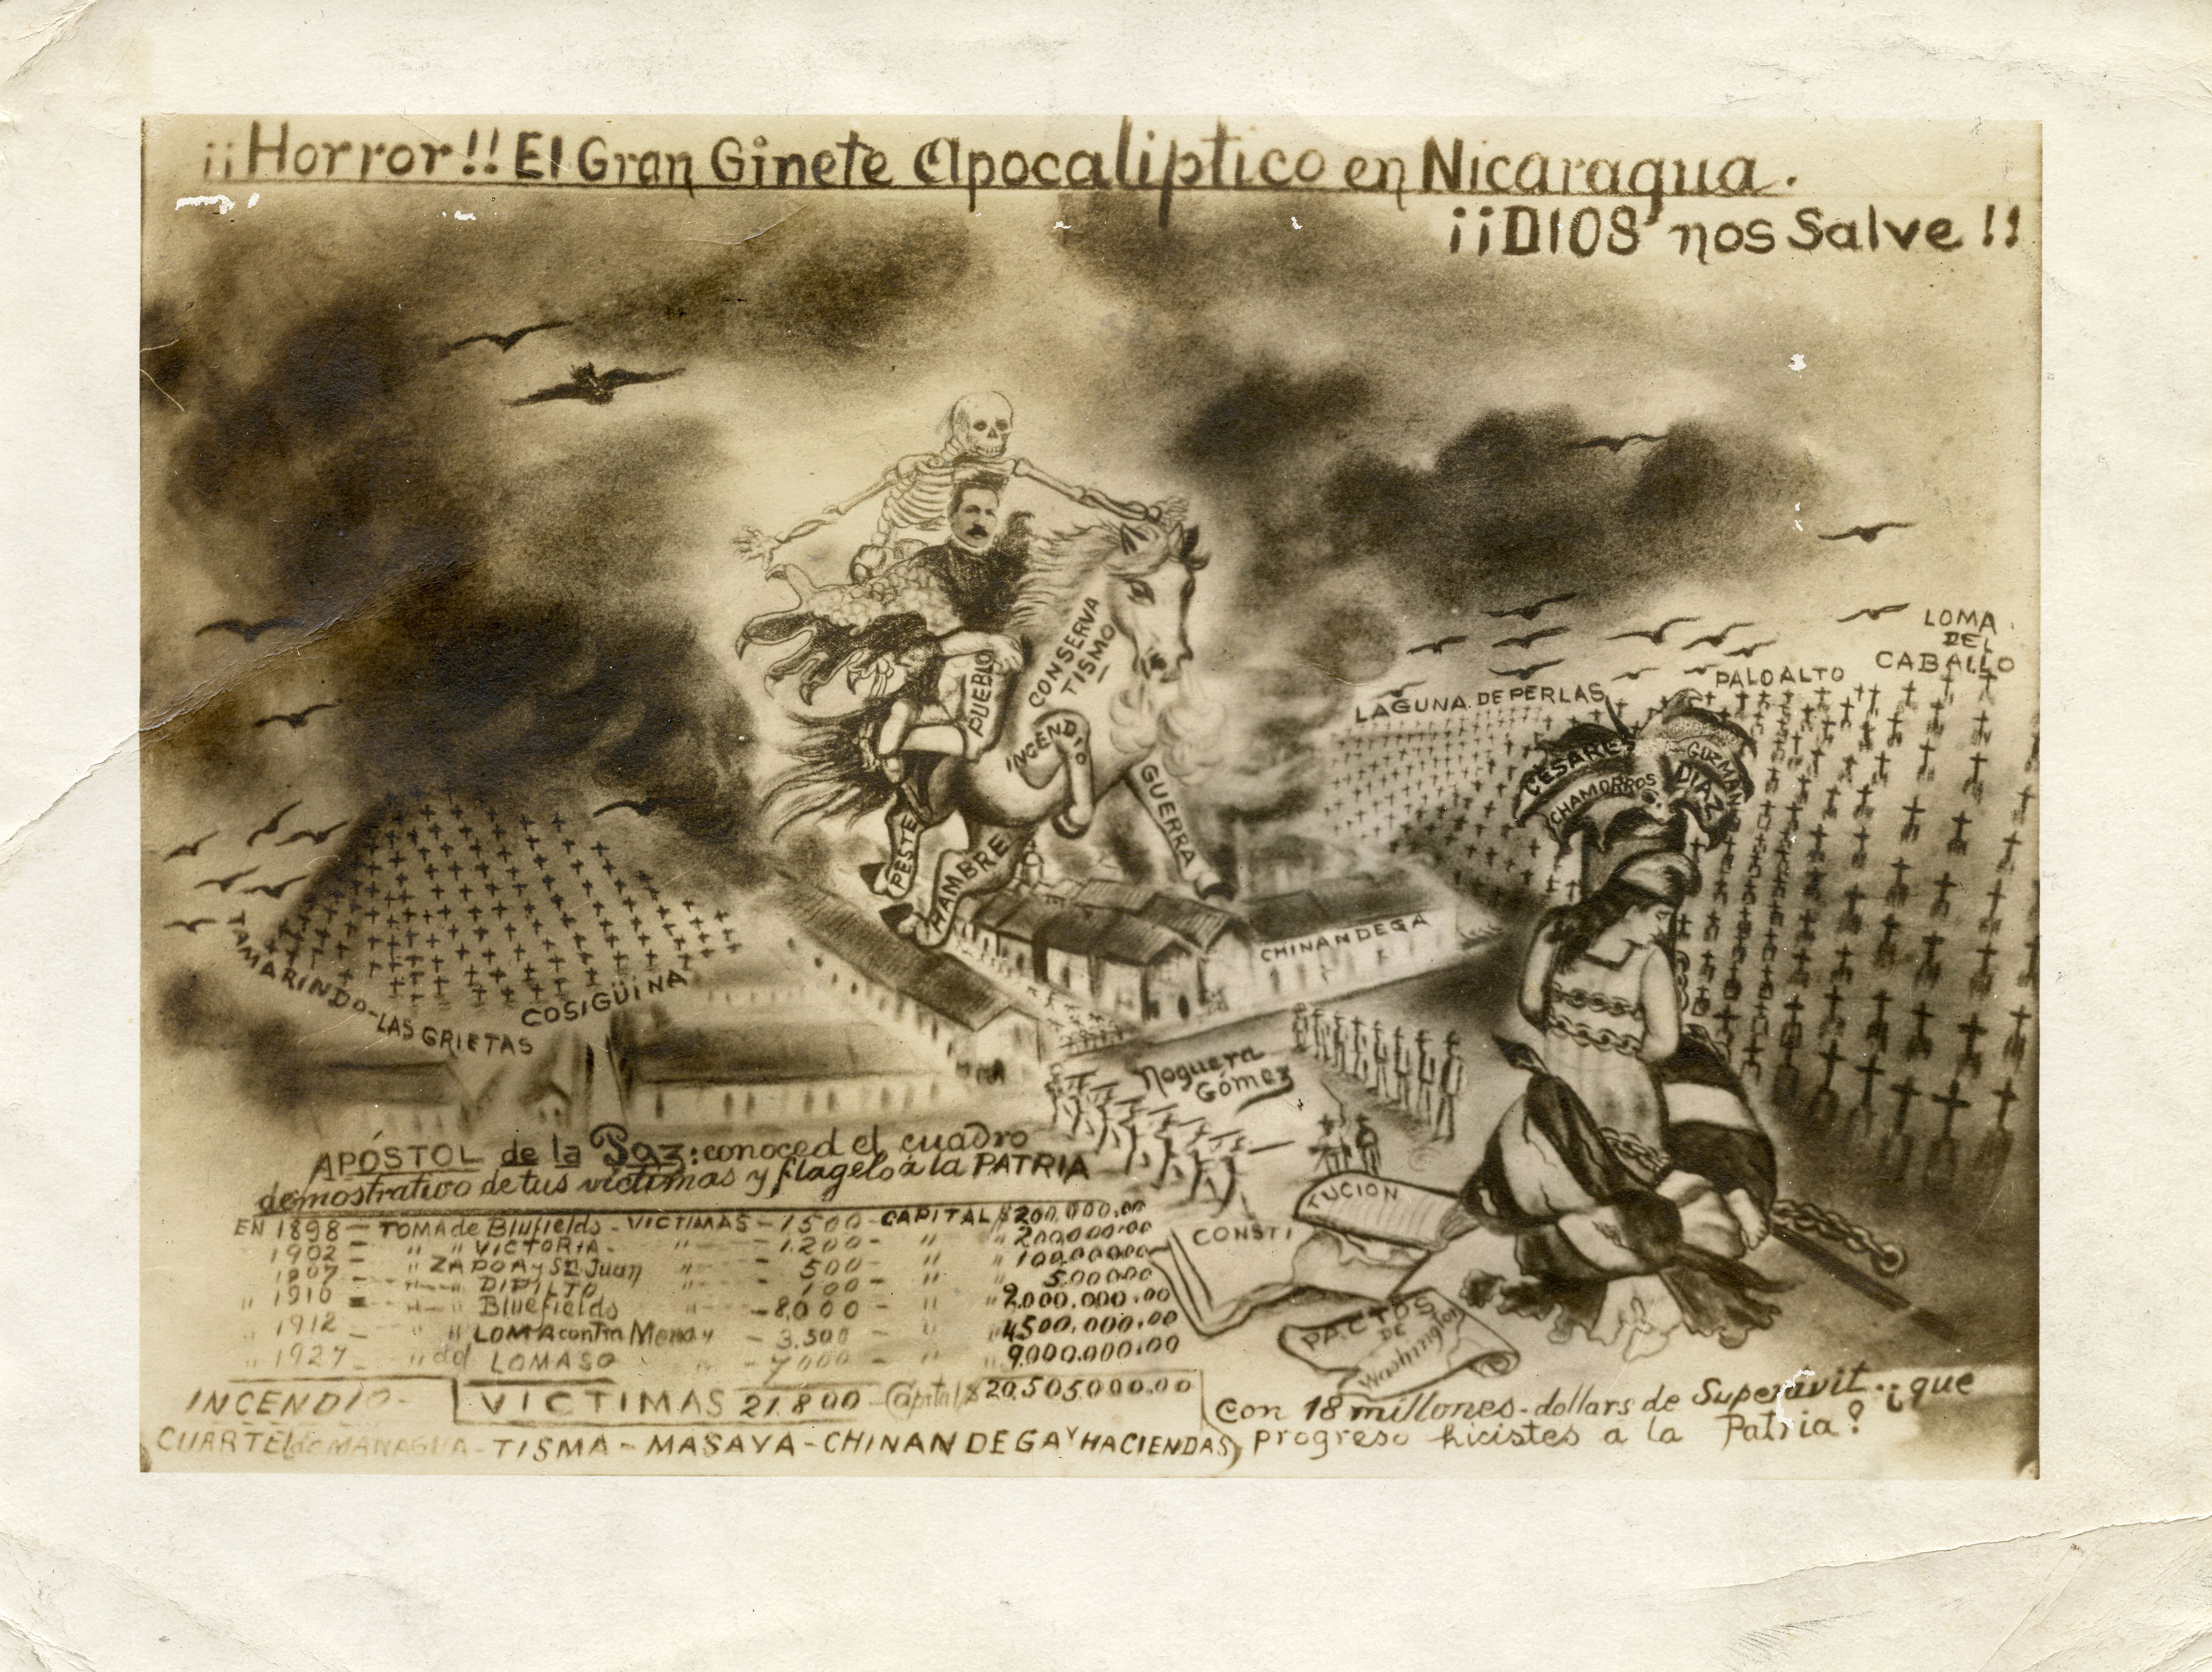 ¡¡Horror!! El Gran Ginete Apocaliptico en Nicaragua.
¡¡DIOS nos Salve!!
LOMA
DEL
CABALLO
PALO ALTO
LAGUNA DE PERLAS
CONSERVA
TISMO
PUEBLO
INCENDIO
GUERRA
PESTE
HAMBRE
CESARE
GUZMAN
CHAMORROS
DIAZ
CHINANDEGA
TAMARINDO-LAS GRIETAS
COSIGÜINA
Noguera
Gómez
APÓSTOL de la Paz: conoced el cuadro
demostrativo de tus victimas y flagelo á la PATRIA
EN 1898 - TOMA de Blufields - VICTIMAS - 1500 - CAPITAL $ 200,000.00
1902 - " " VICTORIA - " - 1.200 - " " 200,000.00
1907 - " ZAPOA y Sn Juan " - 500 - " " 100,000.00
" - " DIPILTO " - 100 - " " 5.000.00
" 1910 - " - " Bluefields " - 8,000 - " " 2.000.000.00
" 1912 " LOMA contra Mena y - 3.500 - " " 4500.000.00
" 1927 - " del LOMASO " - 7000 - " " 9.000.000.00
INCENDIO - VICTIMAS 21.800 - Capital $ 20.505,000.00
CUARTEL de MANAGUA - TISMA - MASAYA - CHINANDEGA Y HACIENDAS
CONSTI
TUCION
PACTOS
DE
Washington
Con 18 millones - dollars de Superávit.. ¿que
progreso hicistes a la Patria?